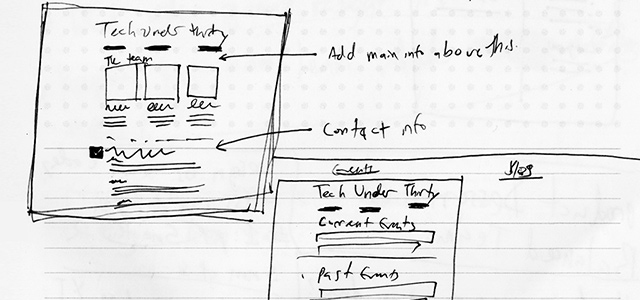 Tech Under Thirty
The team
Add main info above this.
Contact info
Events
Blog
Tech Under Thirty
Current Events
Past Events